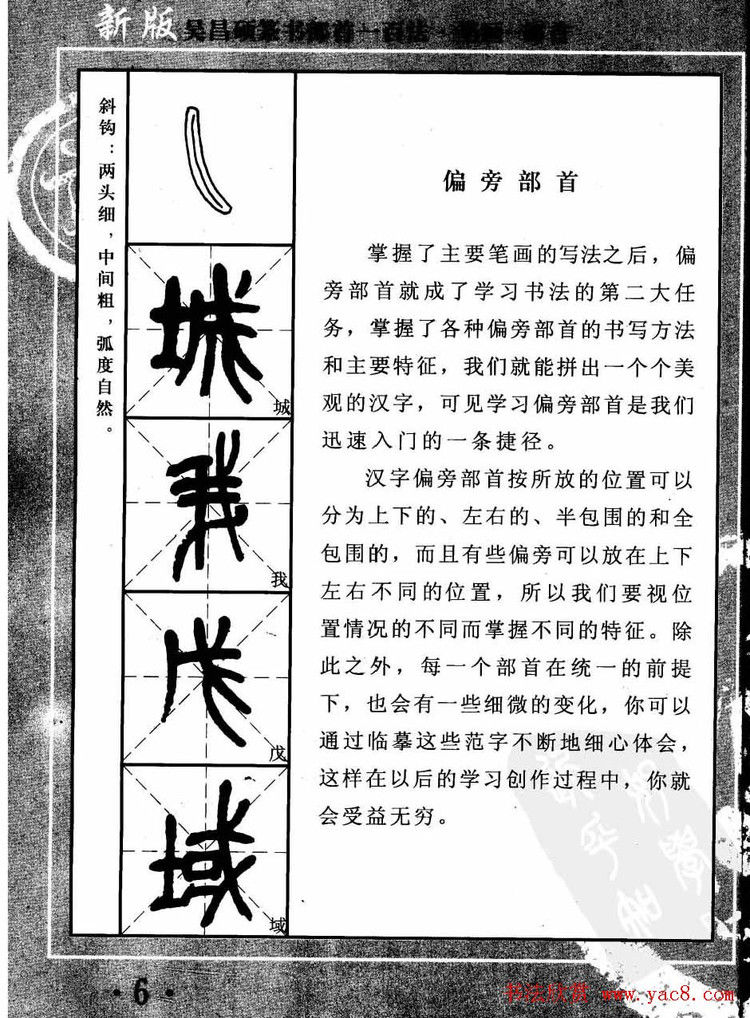 新版 吴昌硕篆书部首一百法
斜钩：两头细，中间粗，弧度自然。
城
我
戊
域
偏旁部首
掌握了主要笔画的写法之后，偏
旁部首就成了学习书法的第二大任
务，掌握了各种偏旁部首的书写方法
和主要特征，我们就能拼出一个个美
观的汉字，可见学习偏旁部首是我们
迅速入门的一条捷径。
汉字偏旁部首按所放的位置可以
分为上下的、左右的、半包围的和全
包围的，而且有些偏旁可以放在上下
左右不同的位置，所以我们要视位
置情况的不同而掌握不同的特征。除
此之外，每一个部首在统一的前提
下，也会有一些细微的变化，你可以
通过临摹这些范字不断地细心体会，
这样在以后的学习创作过程中，你就
会受益无穷。
·6·
书法欣赏 www.yac8.com